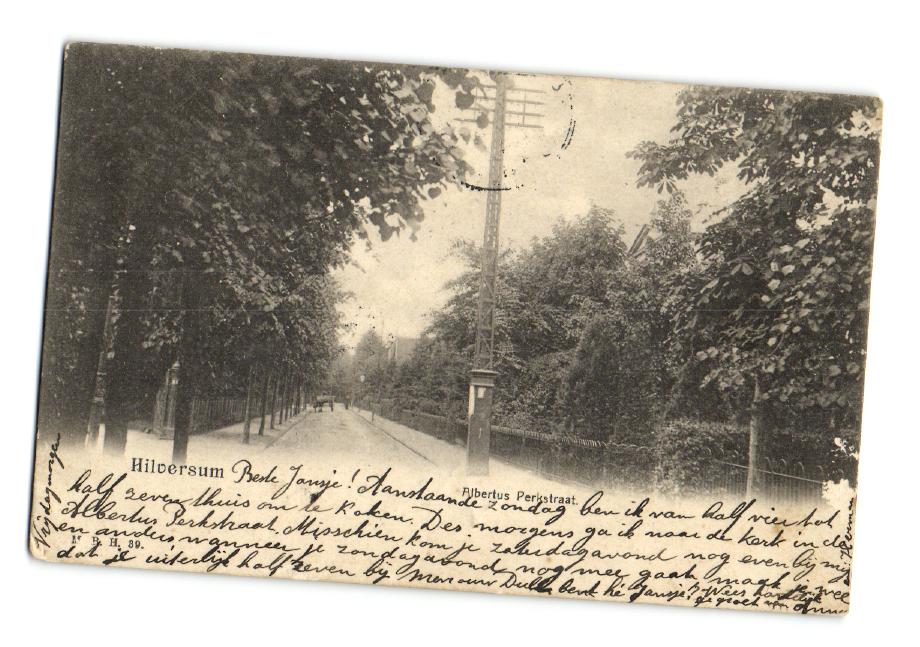 Hilversum
Albertus Perkstraat.
N. B. H. 39.
Vrijdagmorgen
Beste Jansje! Aanstaande zondag ben ik van half vier tot
half zeven thuis om te koken. Des morgens ga ik naar de kerk in de
Albertus Perkstraat. Misschien kom je zaterdagavond nog even bij mij
en anders wanneer je zondagavond nog mee gaat maak je wee
dat je uiterlijk half zeven bij Mevrouw bent hé Jansje? Wees hartelijk
gegroet van Anna